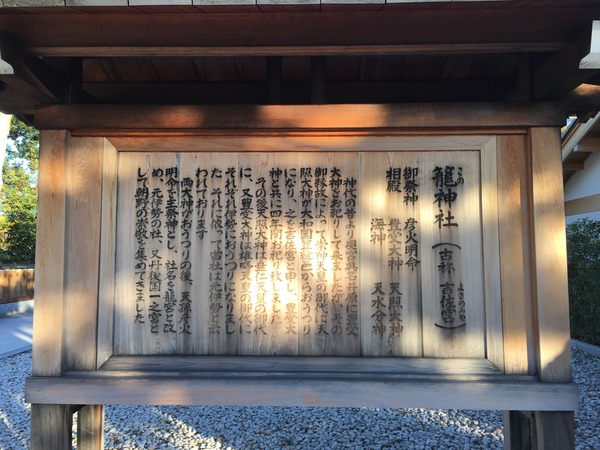 籠神社(古称 吉佐宮)
この
よさのみや
御祭神 彦火明命
相殿 豊受大神 天照大神
海神 天水分神
神代の昔より奥宮真名井原に豊受
大神をお祀りして来ましたが、その
御縁故によって崇神天皇の御代に天
照大神が大和国笠縫邑からおうつり
になり、之を吉佐宮と申し、豊受大
神と共に四年間お祀り致しました
その後天照大神は垂仁天皇の御代
に、又豊受大神は雄略天皇の御代に
それぞれ伊勢におうつりになりまし
た それに依って當社は元伊勢と云
われております
両大神がおうつりの後、天孫彦火
明命を主祭神とし、社名を籠宮と改
め、元伊勢の社、又丹後国一之宮と
して朝野の崇敬を集めてきました